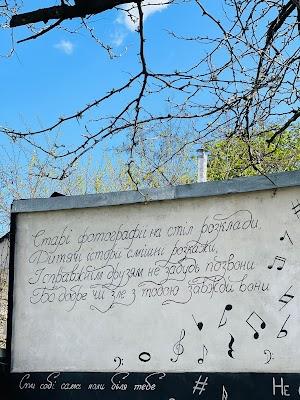 Старі фотографии на стіл розклади,
Дитячі історії смішні розкажи,
І справжнім друзям не забудь позвони
Бо добре чи зле з тобою завжди вони
Спи собі сама коли біля тебе
# Не